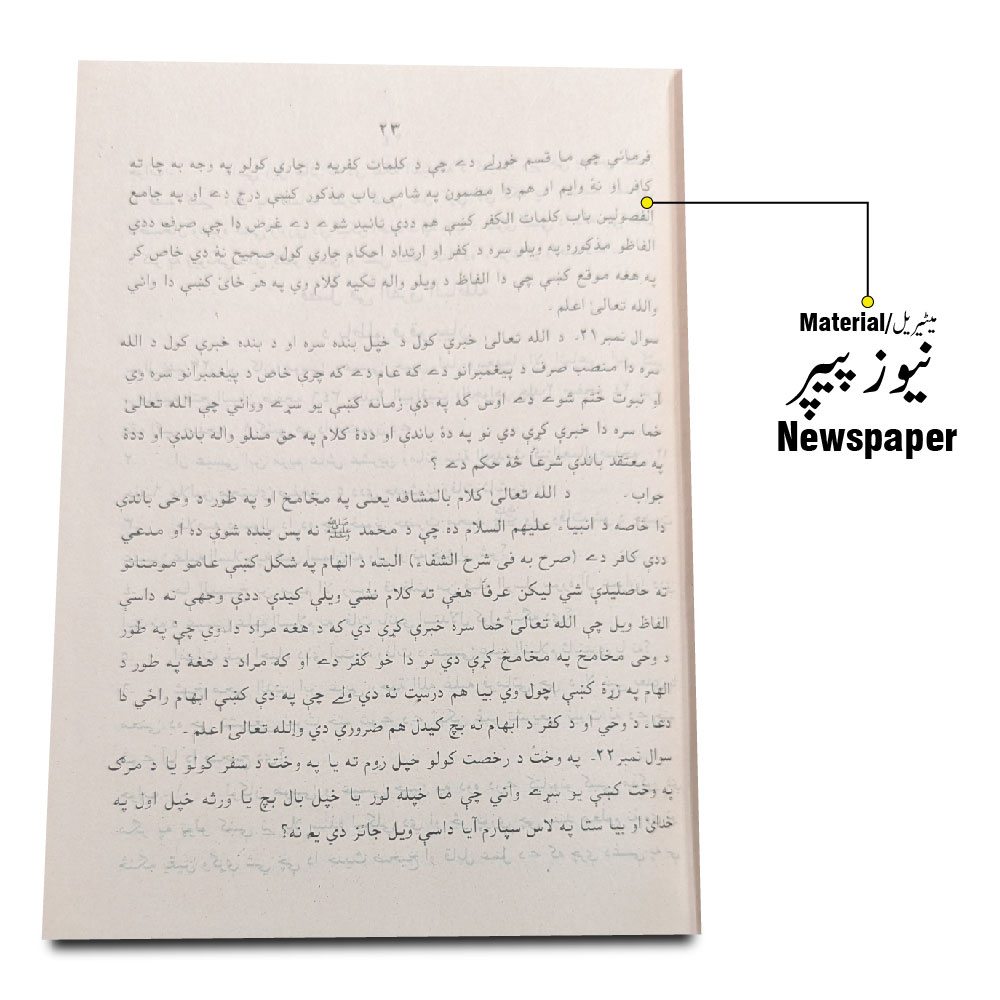 ۲۳
فرمائي چې ما قسم خوړلے دے چې د کلمات کفریه د جاري کولو په وجه به چا ته
کافر او نۀ وایم او هم دا مضمون په شامی باب مذکور کښې درج دے او په جامع
الفصولین باب کلمات الکفر کښې هم ددې تائید شوے دے غرض دا چې صرف ددې
الفاظو مذکوره په ویلو سره د کفر او ارتداد احکام جاري کول صحیح نۀ دي خاص کر
په هغه موقع کښې چې دا الفاظ د ویلو واله تکیه کلام وي په هر ځائ کښې دا وائي
والله تعالیٰ اعلم .
سوال نمبر ۲۱- د الله تعالیٰ خبرې کول د خپل بنده سره او د بنده خبرې کول د الله
سره دا منصب صرف د پیغمبرانو دے که عام دے که چرې خاص د پیغمبرانو سره وي
او نبوت ختم شوے دے اوس که په دې زمانه کښې یو سړے ورائي چې الله تعالیٰ
ځما سره دا خبرې کړې دي نو په دۀ باندې او ددۀ کلام په حق منلو واله باندې او ددۀ
په معتقد باندې شرعاً څۀ حکم دے ؟
جواب . د الله تعالیٰ کلام بالمشافه یعنې په مخامخ او په طور د وحی باندې
دا خاصه د انبیاء علیهم السلام ده چې د محمد ﷺ نه پس بنده شوې ده او مدعي
ددې کافر دے (صرح به فی شرح الشفاء) البته د الهام په شکل کښې عامو مومنانو
ته حاصلیدې شي لیکن عرفاً هغې ته کلام نشي ویلې کیدې ددې وجهې نه داسې
الفاظ ویل چې الله تعالیٰ ځما سره خبرې کړې دي که د هغه مراد دا وي چې په طور
د وحی مخامخ په مخامخ کړې دي نو دا خو کفر دے او که مراد د هغۀ په طور د
الهام په زړۀ کښې اچول وي بیا هم درست نۀ دي ولے چې په دې کښې ابهام راځي دا
دعاء د وحي او د کفر د ابهام نه بچ کیدل هم ضروري دي والله تعالیٰ اعلم .
سوال نمبر ۲۲- په وخت د رخصت کولو خپل زوم ته یا په وخت د سفر کولو یا د مرګ
په وخت کښې یو سړے وائي چې ما خپله لور یا خپل بال بچ یا ورثه خپل اول په
خدائ او بیا ستا په لاس سپارم آیا داسې ویل جائز دي یم نه؟
Material/میٹیریل
نیوز پیپر
Newspaper